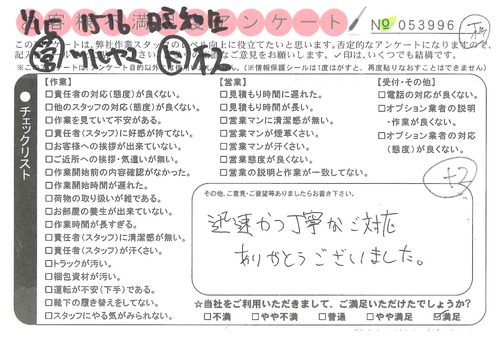 お客様満足度アンケート
No 053996
このアンケートは、弊社作業スタッフのレベル向上に役立てたいと思います。否定的なアンケートになりますので、
【作業】
□責任者の対応(態度)が良くない。
□他のスタッフの対応(態度)が良くない。
□作業を見ていて不安がある。
□責任者(スタッフ)に好感が持てない。
□お客様への挨拶が出来ていない。
□ご近所への挨拶・気遣いが無い。
□作業開始前の内容確認がなかった。
□作業開始時間が遅れた。
□荷物の取り扱いが雑である。
□お部屋の養生が出来ていない。
□作業時間が長すぎる。
□責任者(スタッフ)に清潔感が無い。
□責任者(スタッフ)が汗くさい。
□トラックが汚い。
□梱包資材が汚い。
□運転が不安(下手)である。
□靴下の履き替えをしてない。
□スタッフにやる気がみられない。
【営業】
□見積もり時間に遅れた。
□見積もり時間が長い。
□営業マンに清潔感が無い。
□営業マンが煙草くさい。
□営業マンが汗くさい。
□営業態度が良くない。
□営業の説明と作業が一致してない。
【受付・その他】
□電話の対応が良くない。
□オプション業者の説明
・作業が良くない。
□オプション業者の対応
(態度)が良くない。
チェックリスト
+2
その他、ご意見・ご要望等ありましたらお書き下さい。
迅速かつ丁寧なご対応
ありがとうございました。
☆当社をご利用いただきまして、ご満足いただけたでしょうか?
□不満 □やや不満 □普通 □やや満足 ☑満足